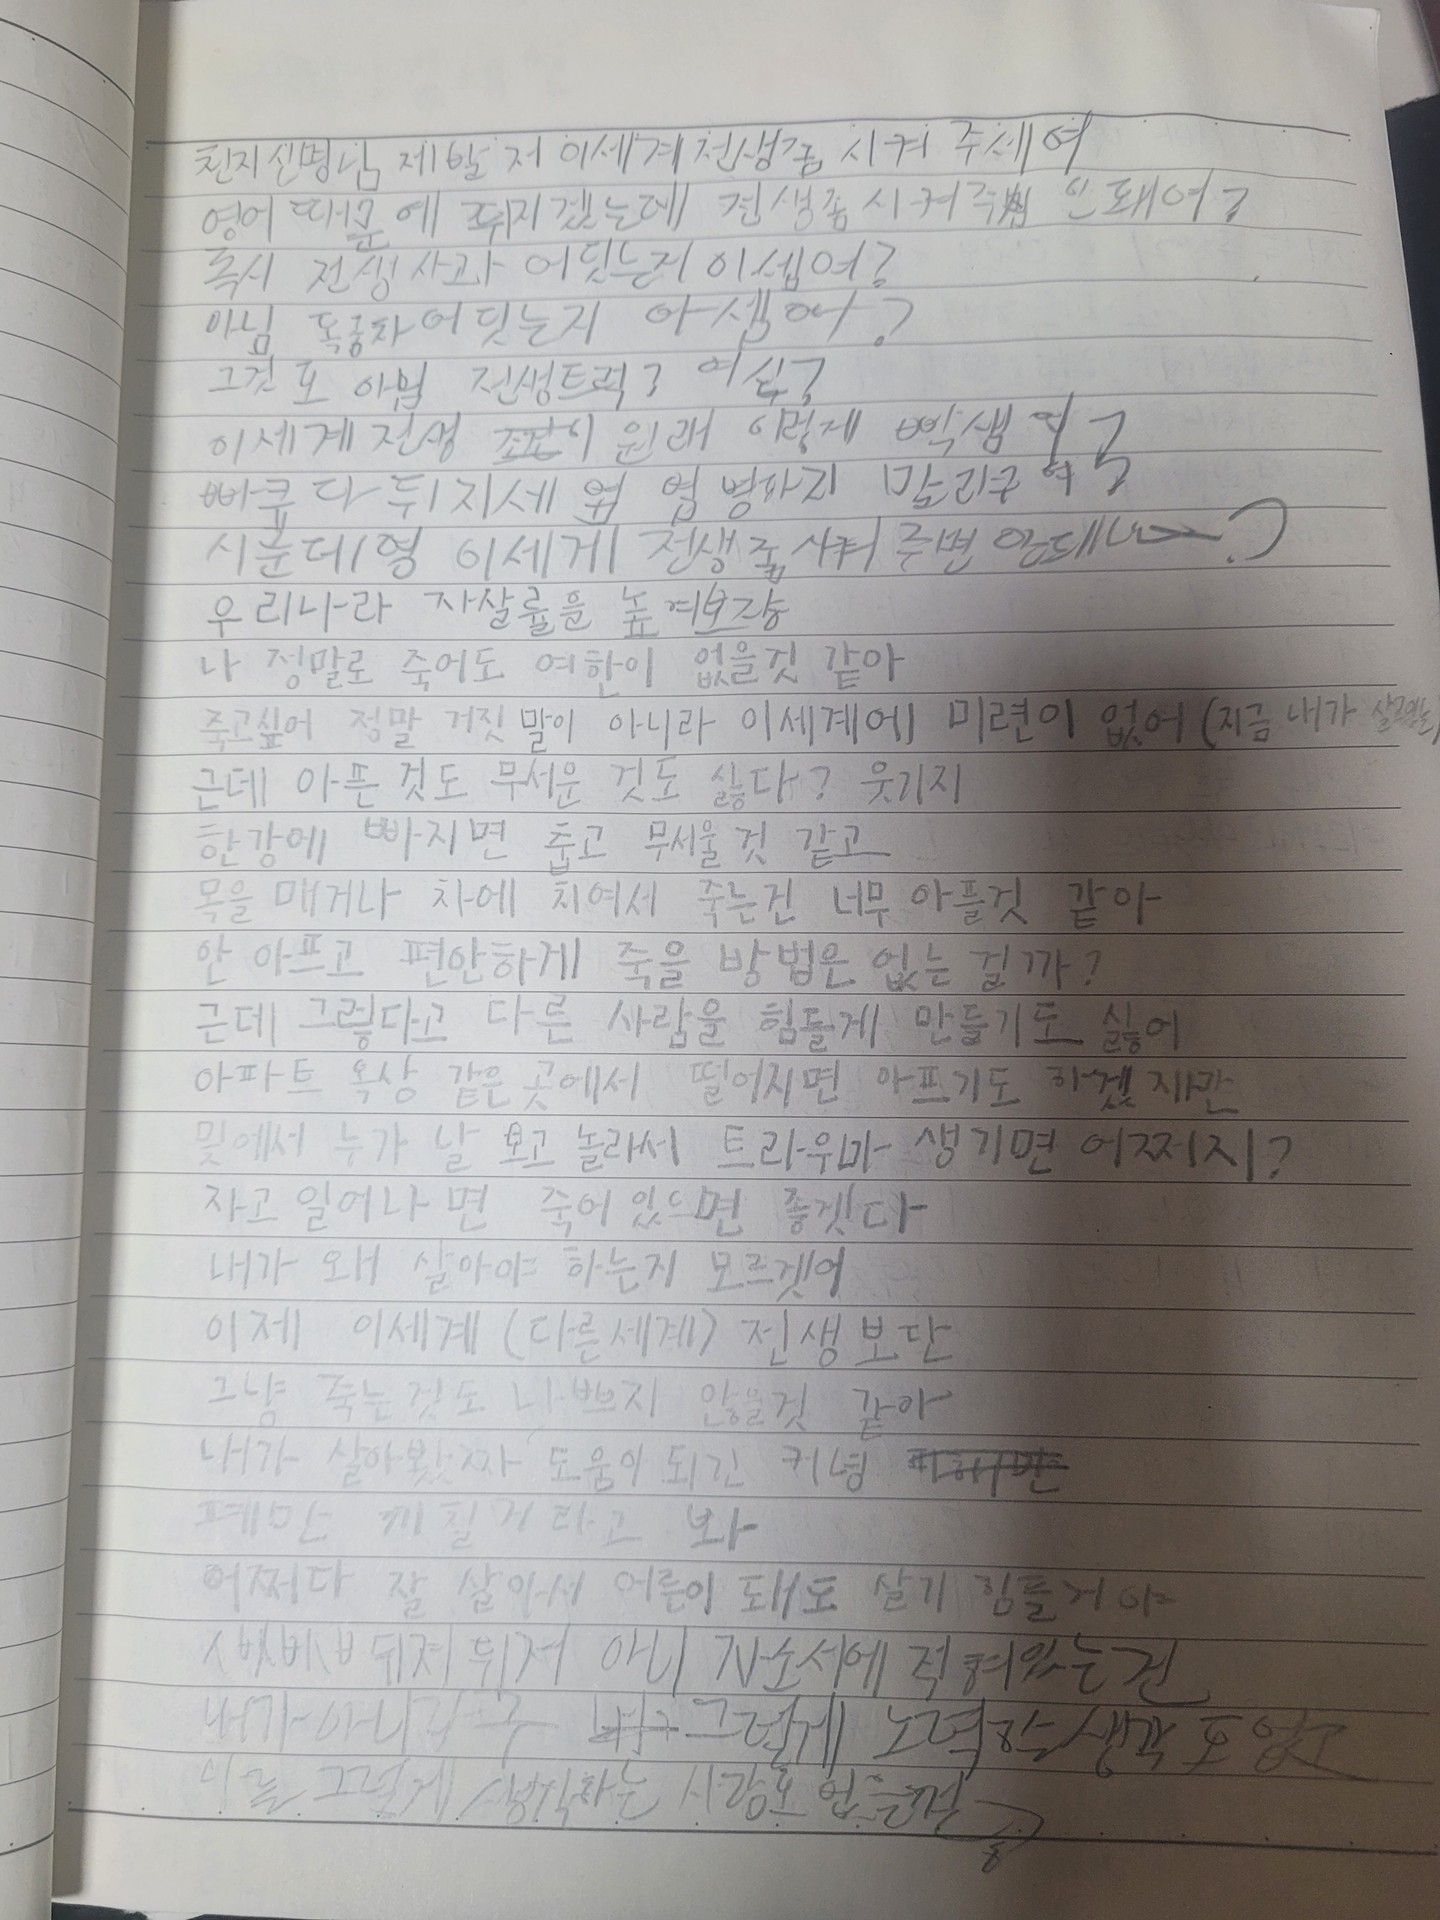 천지신명님 제발 저 이세계 전생좀 시켜 주세여
영어 때문에 뒤지겠는데 전생좀 시켜주면 안돼여?
혹시 전생사과 어딧는지 아셉여?
아님 독극차 어딧는지 아셉여?
그것도 아님 전생트럭? 여신?
이세계 전생 조건이 원래 이렇게 빡셉여?
빠큐 다 뒤지세엽 엽병하지 말리구여
시룬데 형 이세계 전생좀 시켜 주면 안돼나
우리나라 자살률을 높여보장
나 정말로 죽어도 여한이 없을것 같아
죽고싶어 정말 거짓말이 아니라 이세계에 미련이 없어 (지금 내가 살고있는)
근데 아픈 것도 무서운 것도 싫다? 웃기지
한강에 빠지면 춥고 무서울것 같고
목을 매거나 차에 치여서 죽는건 너무 아플것 같아
안 아프고 편안하게 죽을 방법은 없는 걸까?
근데 그렇다고 다른 사람을 힘들게 만들기도 싫어
아파트 옥상 같은 곳에서 떨어지면 아프기도 하겠지만
밑에서 누가 날 보고 놀라서 트라우마 생기면 어쩌지?
자고 일어나면 죽어있으면 좋겟다
내가 왜 살아야 하는지 모르겟어
이제 이세계 (다른세계) 전생보단
그냥 죽는것도 나쁘지 않을것 같아
내가 살아봤짜 도움이 되긴 커녕
폐만 끼칠거라고 봐
어쩌다 잘 살아서 어른이 돼도 살기 힘들거야
뒤져 뒤져 아니 자소서에 적혀있는건
내가 아니라구 그렇게 노력할 생각도 없고
나를 그렇게 생각하는 사람도 없는걸